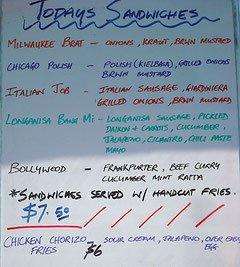 TODAYS SANDWICHES
MILWAUKEE BRAT - ONIONS, KRAUT, BRWN MUSTARD
CHICAGO POLISH - POLISH (KIELBASA), GRILLED ONIONS
BRWN MUSTARD
ITALIAN JOB - ITALIAN SAUSAGE, GIARDINIERA
GRILLED ONIONS, BRWN MUSTARD
LONGANISA BANH MI - LONGANISA SAUSAGE, PICKLED
DAIKON + CARROTS, CUCUMBER,
JALAPENO, CILANTRO, CHILI PASTE
MAYO
BOLLYWOOD - FRANKFURTER, BEEF CURRY
CUCUMBER MINT RAITA
*SANDWICHES SERVED W/ HANDCUT FRIES.
$7.50
CHICKEN CHORIZO SOUR CREAM, JALAPENO, OVER EASY
FRIES $6 EGG